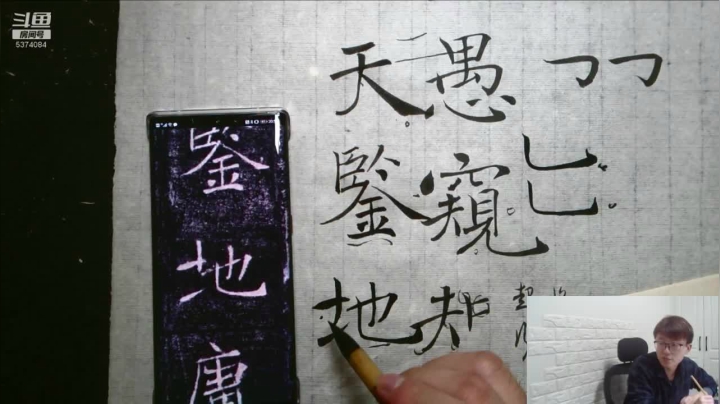 斗鱼
房间号
5374084
愚窺
天鑒地
鑒地庸